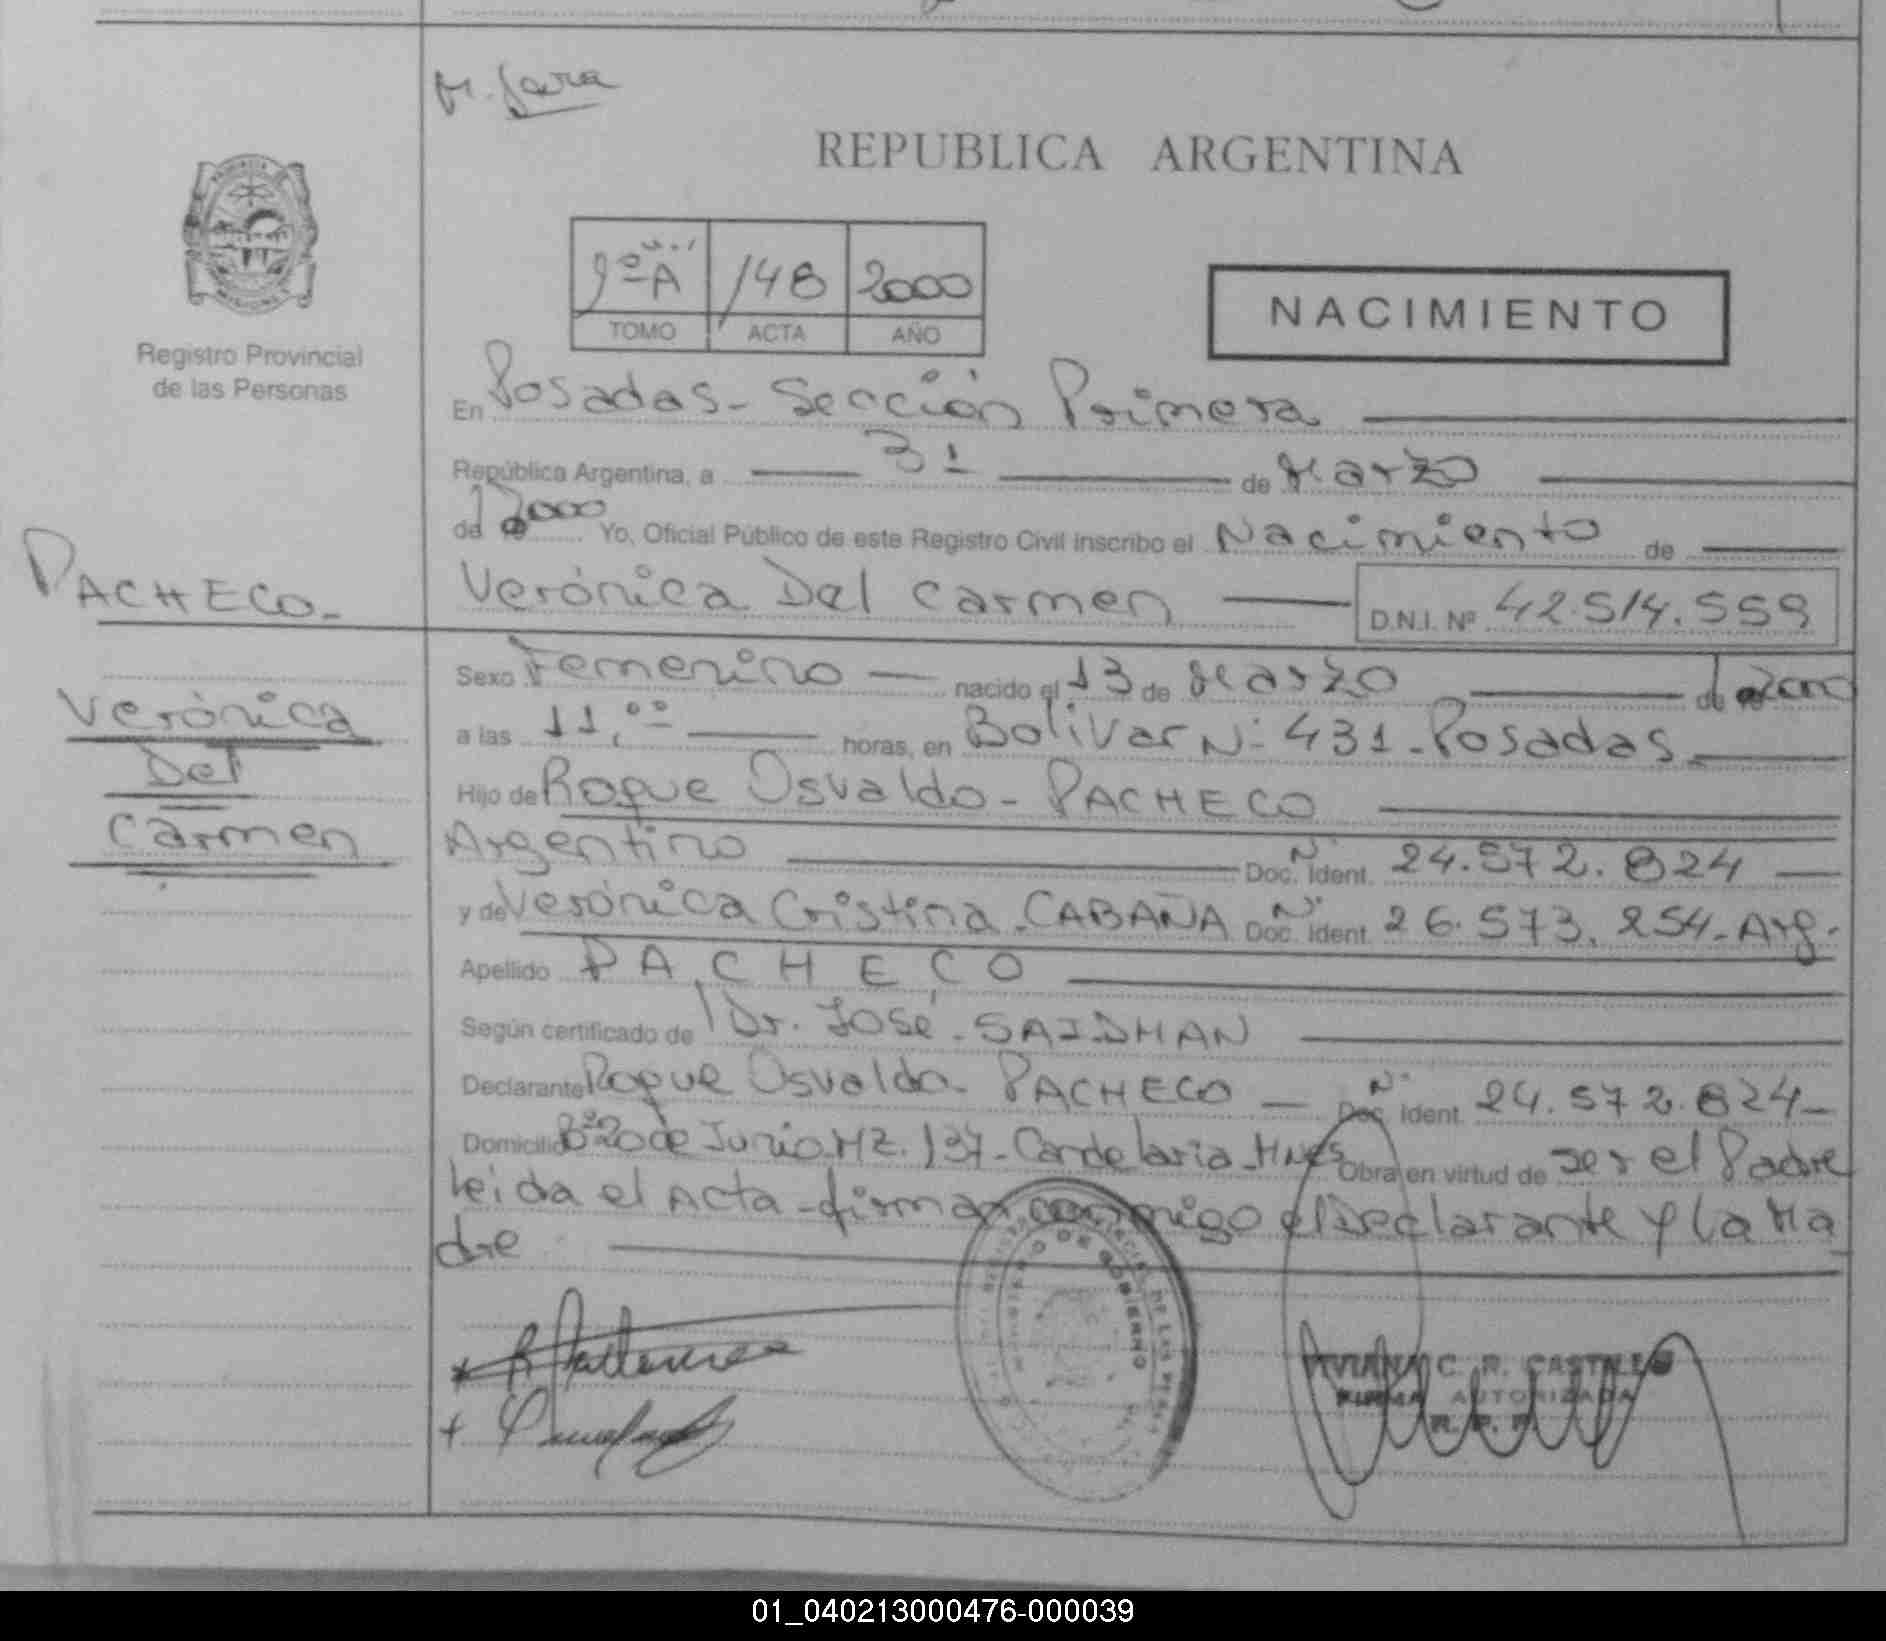 M. Jara
REPUBLICA ARGENTINA
148 2000
TOMO ACTA AÑO
NACIMIENTO
Registro Provincial
de las Personas
En Posadas - Sección Primera
República Argentina, a 31 de Marzo
de 2000 Yo, Oficial Público de este Registro Civil inscribo el Nacimiento de
PACHECO.
Verónica Del Carmen D.N.I. Nº 42.514.559
Sexo Femenino nacido el 13 de Marzo de 2000
Verónica
Del
Carmen
a las 11,ºº horas, en Bolivar Nº 431 - Posadas
Hijo de Roque Osvaldo - PACHECO
Argentino Nº Doc. Ident. 24.572.824
y de Verónica Cristina - CABAÑA Nº Doc. Ident. 26.573.254 - Arg.
Apellido PACHECO
Según certificado de Dr. José - SAIDMAN
Declarante Roque Osvaldo - PACHECO Nº Doc. Ident. 24.572.824
Domicilio Bº 20 de Junio MZ. 137 - Candelaria - Mnes Obra en virtud de ser el Padre
leida el Acta - firman conmigo el Declarante y la Ma
dre
MINISTERIO DE GOBIERNO
VIVIANA C. R. CASTILLO
FIRMA AUTORIZADA
R. P. P.
01_040213000476-000039